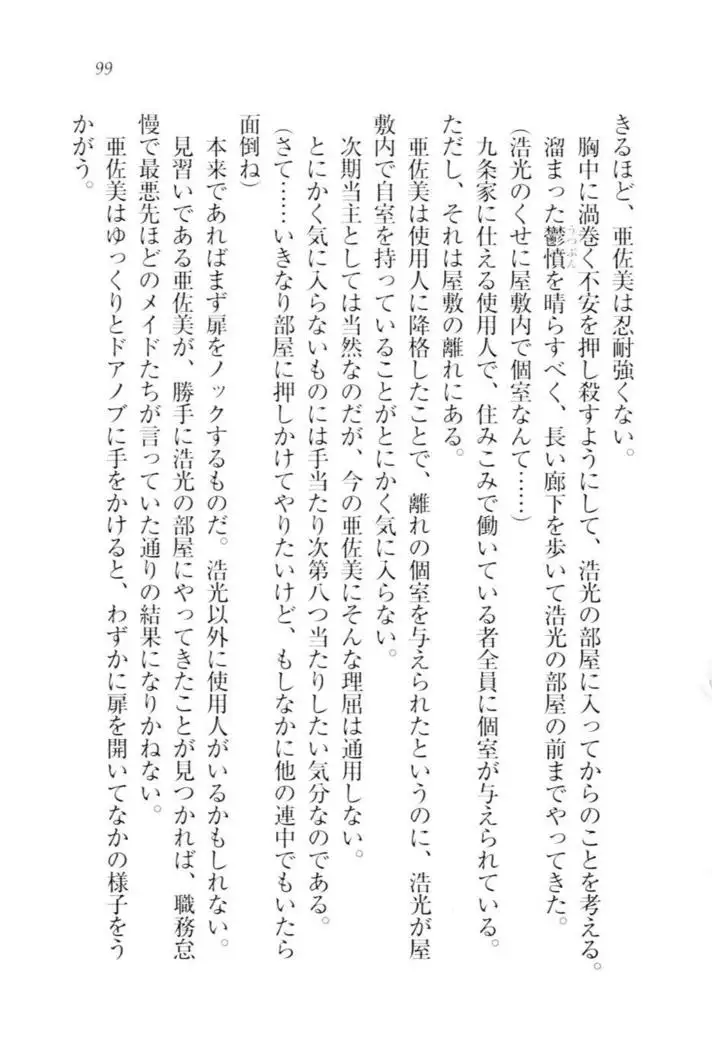 99
きるほど、亜佐美は忍耐強くない。
胸中に渦巻く不安を押し殺すようにして、浩光の部屋に入ってからのことを考える。
溜まった鬱憤を晴らすべく、長い廊下を歩いて浩光の部屋の前までやってきた。
うっぷん
(浩光のくせに屋敷内で個室なんて……)
九条家に仕える使用人で、住みこみで働いている者全員に個室が与えられている。
ただし、それは屋敷の離れにある。
亜佐美は使用人に降格したことで、離れの個室を与えられたというのに、浩光が屋
敷内で自室を持っていることがとにかく気に入らない。
次期当主としては当然なのだが、今の亜佐美にそんな理屈は通用しない。
とにかく気に入らないものには手当たり次第八つ当たりしたい気分なのである。
(さて……いきなり部屋に押しかけてやりたいけど、もしなかに他の連中でもいたら
面倒ね)
本来であればまず扉をノックするものだ。浩光以外に使用人がいるかもしれない。
見習いである亜佐美が、勝手に浩光の部屋にやってきたことが見つかれば、職務怠
慢で最悪先ほどのメイドたちが言っていた通りの結果になりかねない。
亜佐美はゆっくりとドアノブに手をかけると、わずかに扉を開いてなかの様子をう
かがう。